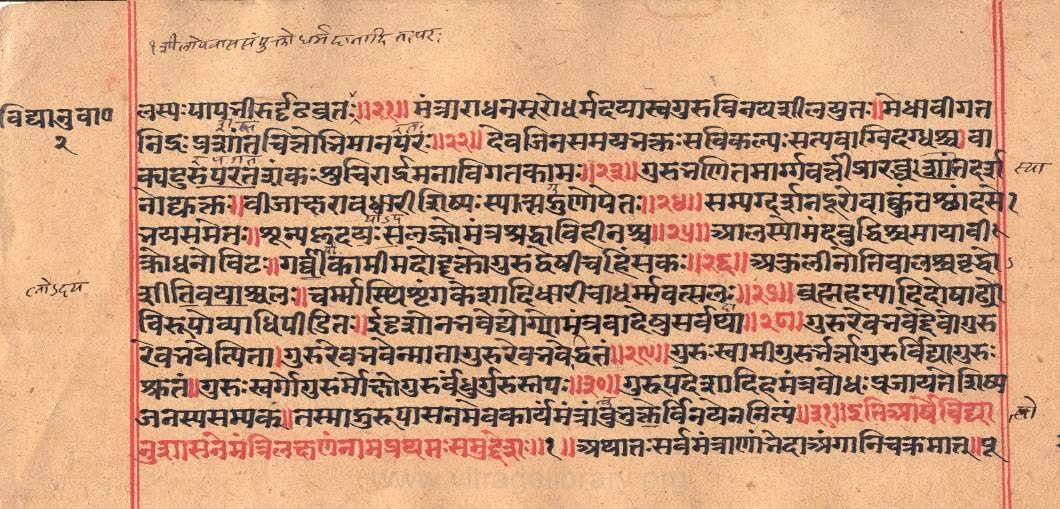 १ शीलोपवाससंयुक्तो धर्मदानादितत्परः
विद्यानुवा॰
२
लस्यः पापभीरुर्दृढव्रतः॥२१॥ मंत्राराधनसूरोधर्मदयास्वगुरुविनयशीलयुतः॥मेधावीगत
निद्रः प्रशांतचित्तोभिमानपरः॥२२॥ देवजिनसमयभक्तः सविकल्पः सत्यवाग्विदग्धश्च। वा
क्पटुरुपरतशंकः शुचिरार्द्रमनाविगतकामः॥२३॥ गुरुभणितमार्गवर्त्ती
बीजाक्षरावधारीशिष्यः स्यात्सद्गुणोपेतः॥२४॥ सम्यग्दर्शनदूरो
त्रयसमेतः॥शून्यहृदयः सलज्जोमंत्रश्रद्धाविहीनश्च॥२५॥ आलस्योमंदबुद्धिश्चमायावी
क्रोधनोविटः॥गर्वीकामीमदोद्रक्तोगुरुद्वेषीचहिंसकः॥२६॥ अकुलीनोतिबालश्चवृद्धो
शीतिवयाश्चलः॥चर्मास्थिशृंगकेशादिधारीचाधर्मवत्सलः॥२७॥ ब्रह्महत्यादिदोषाढ्यो
विरूपोव्याधिपीडितः॥ईदृशोनभवेद्योग्योमंत्रवादेषुसर्वथा॥२८॥ गुरुरेवभवेद्देवोगुरु
रेवभवेत्पिता॥गुरुरेवभवेन्मातागुरुरेवभवेद्धितं॥२९॥ गुरुः स्वामीगुरुर्भर्त्तागुरुर्विद्यागुरुः
गुरुः स्वर्गोगुरुर्मोक्षोगुरुर्बंधुर्गुरुः सखा॥३०॥ गुरूपदेशादिहमंत्रबोधः प्रजायतेशिष्य
जनस्यसम्यक्॥तस्माद्गुरूपासनमेवकार्यमंत्रान्बुभुत्सोर्विनयेननित्यं॥३१॥इत्यार्षेविद्या
नुशासनेमंत्रिलक्षणंनामप्रथमः समुद्देशः॥१॥ अथातः सर्वमंत्राणांभेदाअंगानिचक्रमात्॥
www.vitragelibrary.org